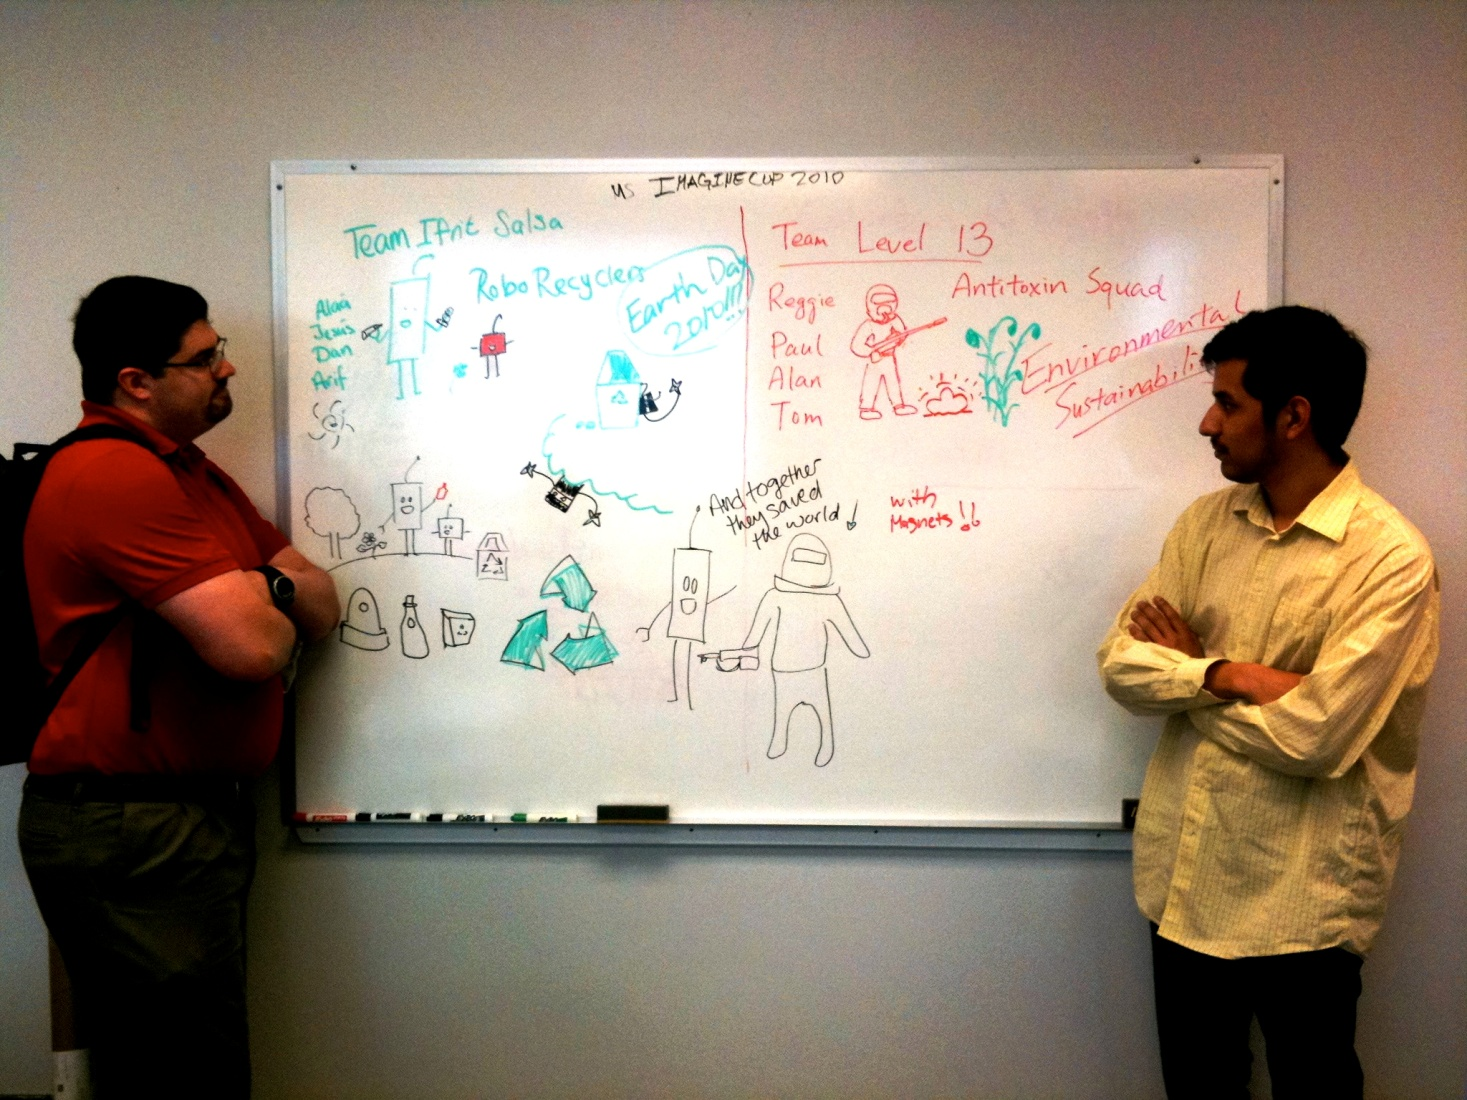 MS IMAGINECUP 2010
Team Ifrit Salsa
RoboRecyclers
Earth Day
2010!!!
Alaa
Jesús
Dan
Arif
Team Level 13
Reggie
Paul
Alan
Tom
Antitoxin Squad
Environmental
Sustainabili
And together
they saved
the world!
with
Magnets!!